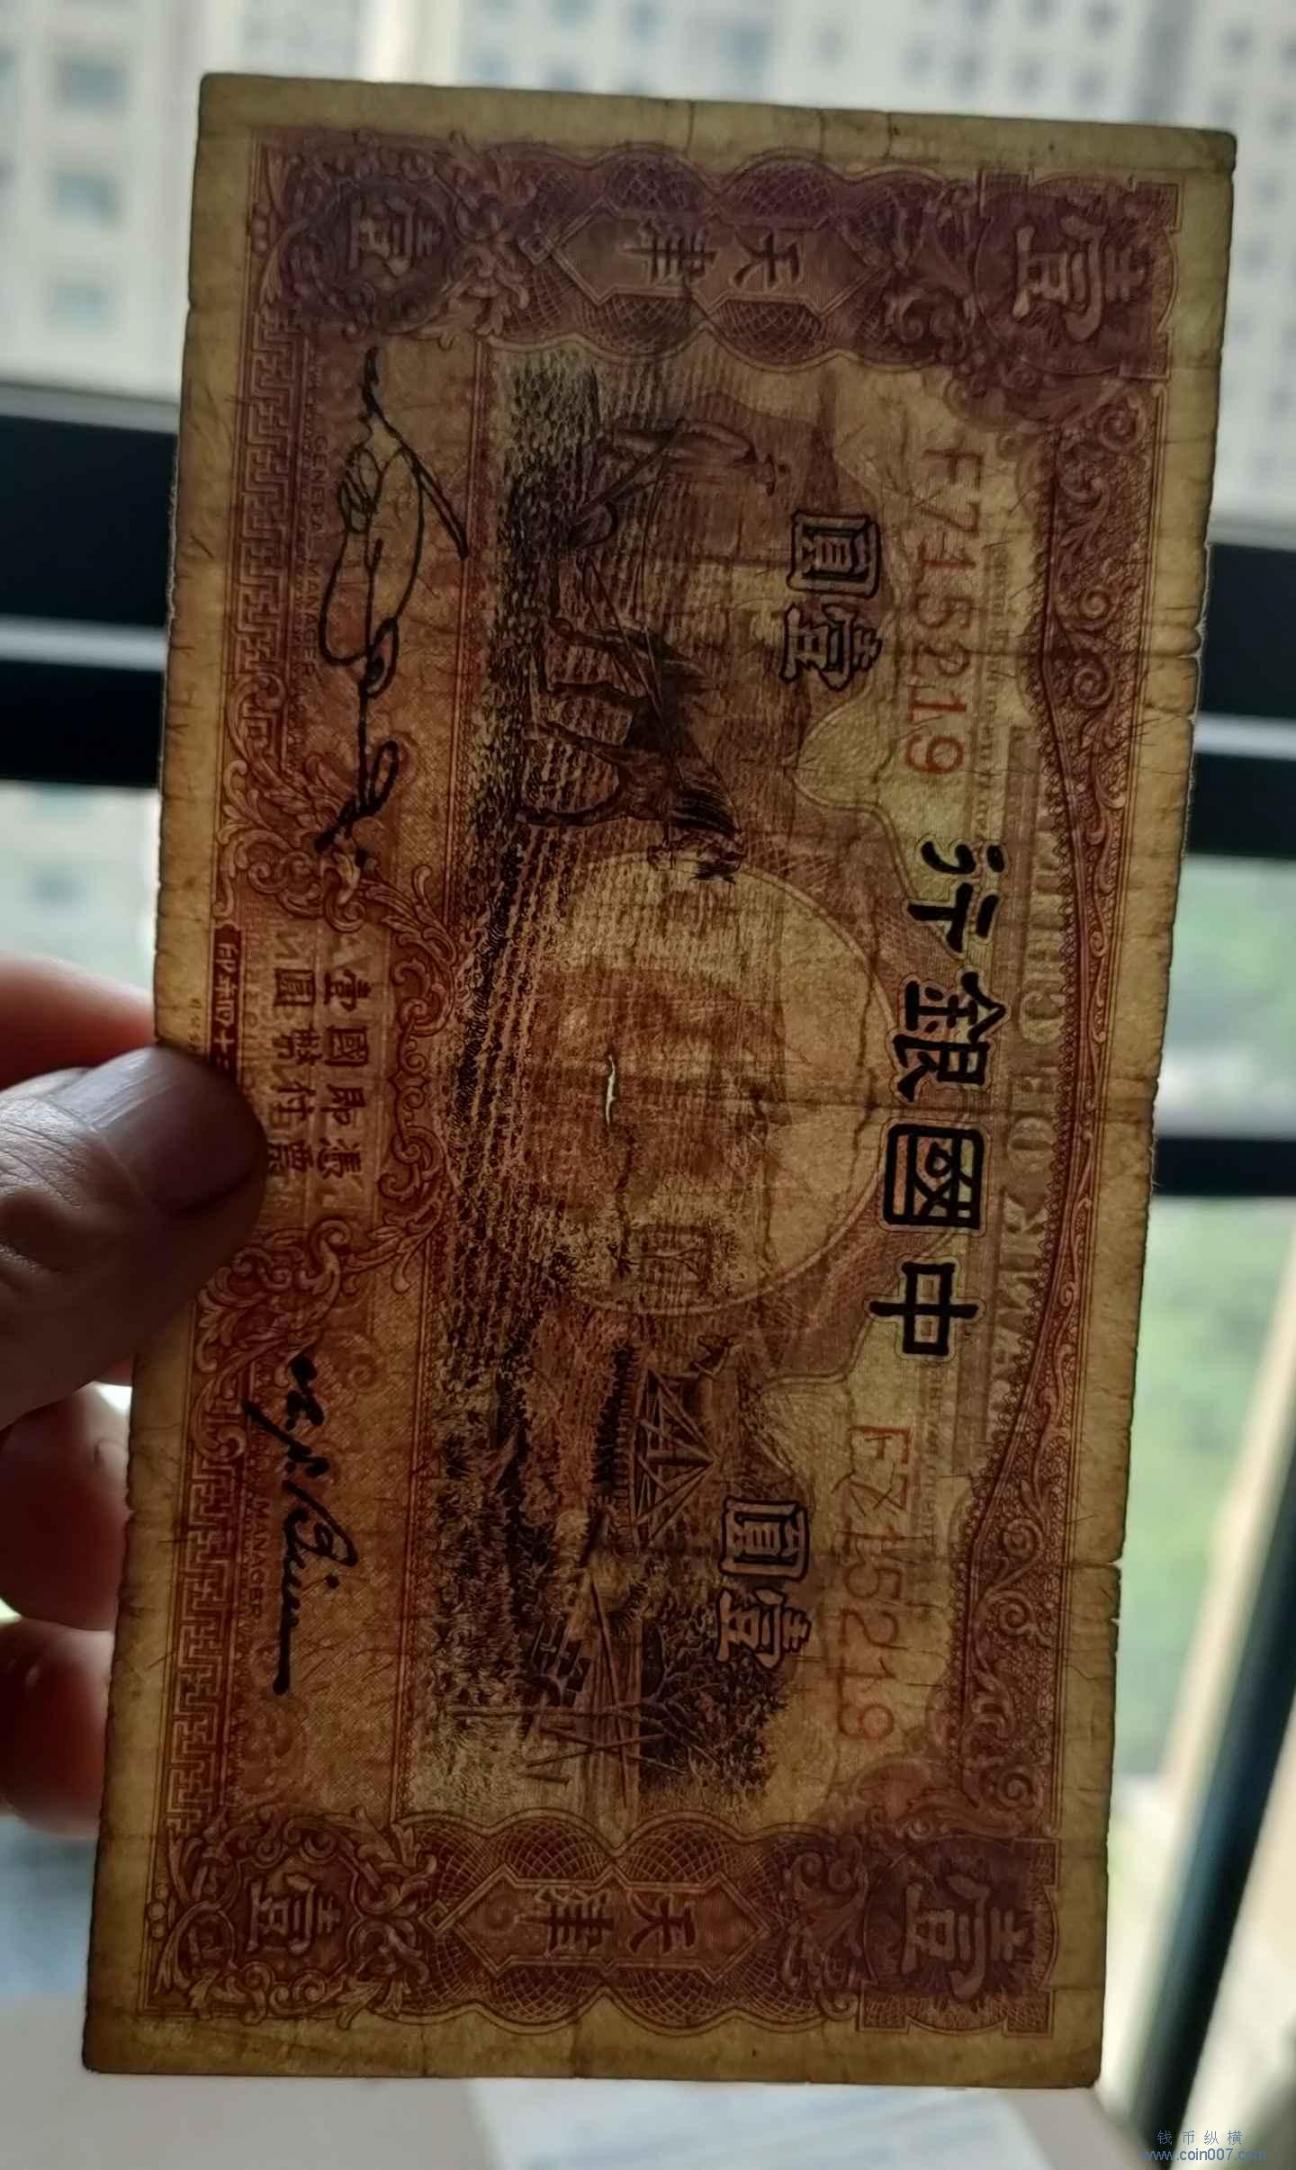 行銀國中
F715219
F715219
圓壹
圓壹
壹
壹
津天
津天
壹
壹
憑票
即付
國幣
壹圓
GENERAL MANAGER
MANAGER
BANK OF CHINA
钱币纵横
www.coin007.com